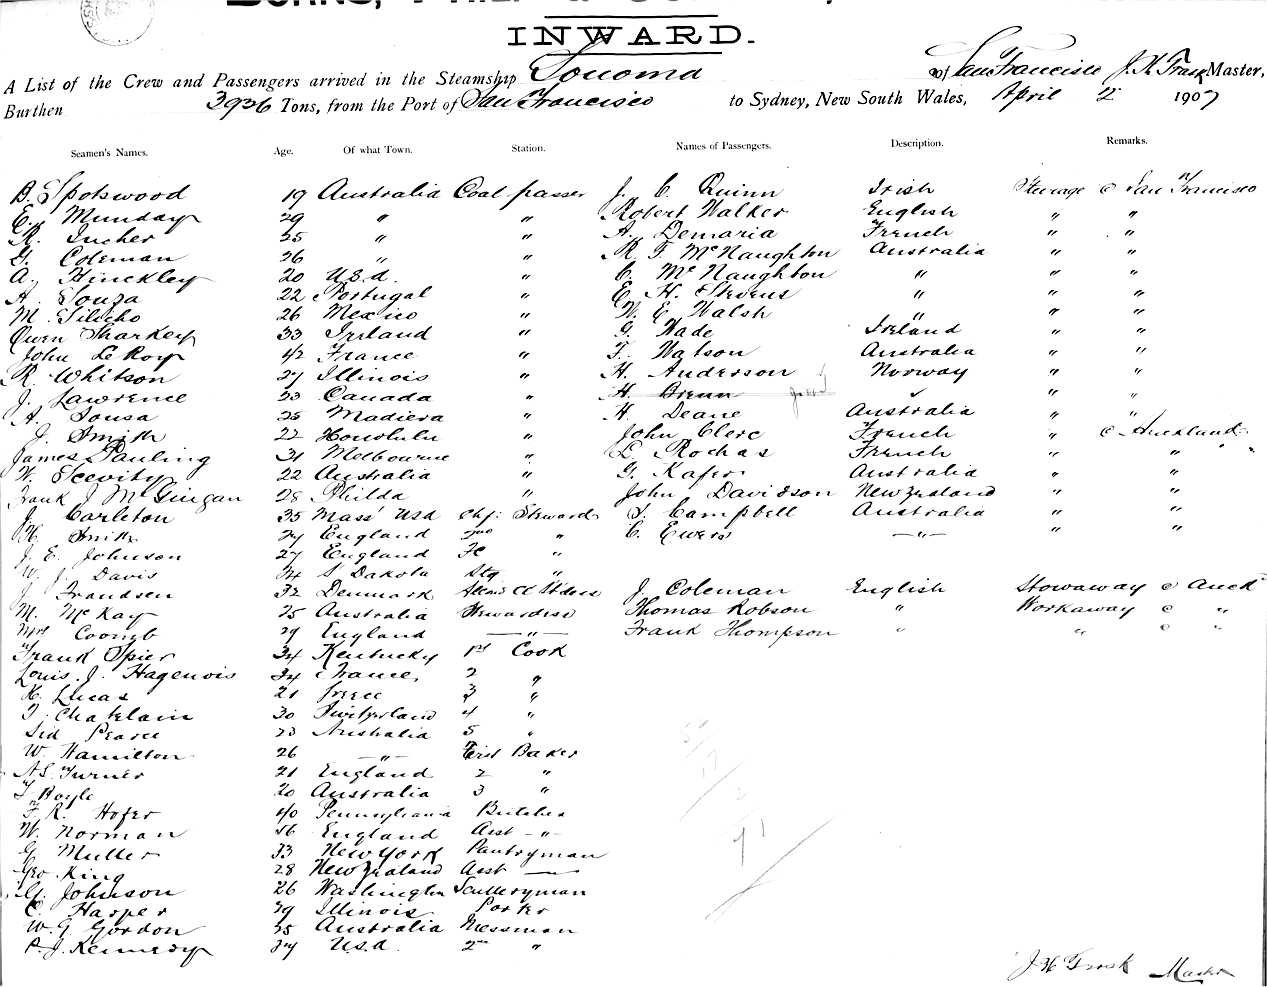 INWARD.
A List of the Crew and Passengers arrived in the Steamship Sonoma of San Francisco J. H. Trask Master,
Burthen 3936 Tons, from the Port of San Francisco to Sydney, New South Wales, April 2 1907
Seamen's Names. Age. Of what Town. Station. Names of Passengers. Description. Remarks.
B. Spotswood 19 Australia Coal passer J. C. Quinn Irish Steerage c San Francisco
E. Munday 29 " " Robert Walker English " "
R. Incher 25 " " A. Demaria French " "
G. Coleman 26 " " R. F. McNaughton Australia " "
A. Hinckley 20 U.S.A. " C. McNaughton " " "
A. Souza 22 Portugal " E. H. Stevens " " "
M. 26 Mexico " W. E. Walsh " " "
Owen Sharkey 33 Ireland " G. Wade Ireland " "
John LeRoy 42 France " T. Watson Australia " "
R. Whitson 27 Illinois " H. Anderson Norway " "
J. Lawrence 23 Canada " H. " "
A. Sousa 25 Madiera " H. Deane Australia " "
J. Smith 22 Honolulu " John Clerc French " c Auckland
James Pauling 31 Melbourne " L. Rochas French " "
W. 22 Australia " G. Kafer Australia " "
Frank J McGuigan 28 Philda " John Davidson New Zealand " "
J. Carleton 35 Mass' USA Chf. Steward S. Campbell Australia " "
H. Smith 27 England 2nd " C. Ewers " " "
J. E. Johnson 27 England "
W. J. Davis 24 S Dakota Stg "
J. Frandsen 32 Denmark J. Coleman English Stowaway c Auck
M. McKay 25 Australia Stewardess Thomas Robson " Workaway c "
Mrs Coomb 29 England " Frank Thompson " " c "
Frank Spier 34 Kentucky 1st Cook
Louis. J. Hagenois 34 France, 2 "
H. Lucas 21 Greece 3 "
T. Chatelain 30 Switzerland 4 "
Sid Pearce 23 Australia 5 "
W. Hamilton 26 " First Baker
A.S. Turner 21 England 2 "
T. Boyle 20 Australia 3 "
F. R. Hofer 40 Pennsylvania Butcher
W. Norman 56 England Asst "
G Muller 33 New York Pantryman
Geo. King 28 New Zealand Asst —
G. Johnson 26 Washington Sculleryman
C. Harper 29 Illinois Porter
W. G. Gordon 35 Australia Messman
P. J. Kennedy 37 U.S.A. 2nd "
J H Trask Master